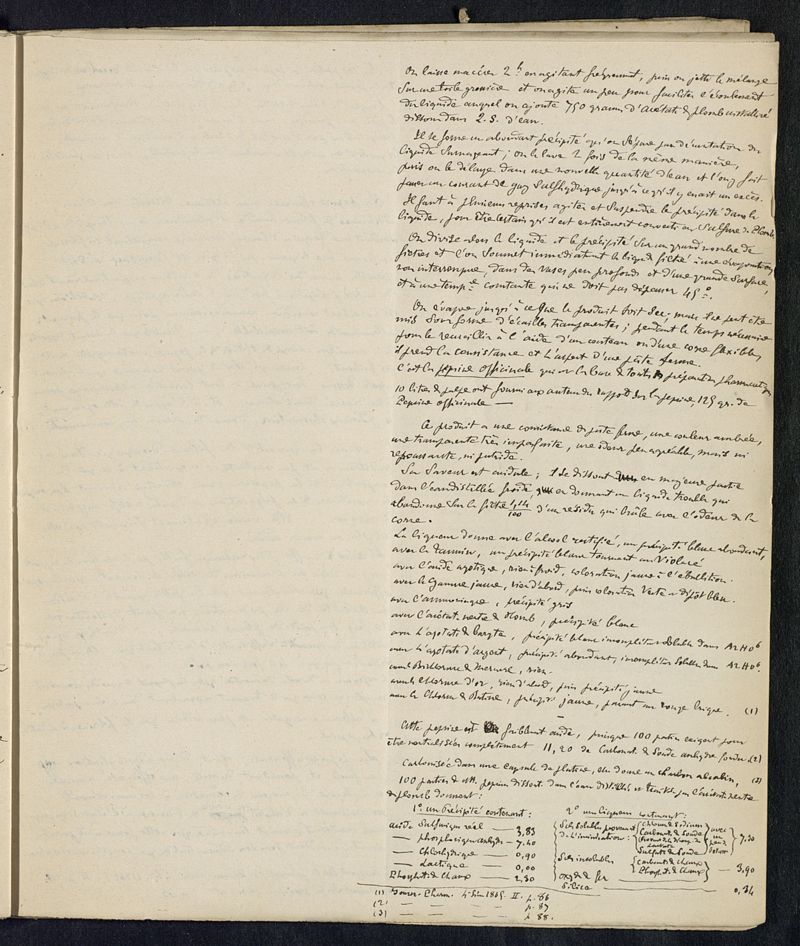 On laisse macérer 2 h. en agitant fréquemment, puis on jette le mélange
sur une toile grossière et on agite un peu pour faciliter l'écoulement
du liquide auquel on ajoute 750 grammes d'acétate de plomb cristallisé
dissous dans 2. S. d'eau.
Il se forme un abondant précipité qu'on sépare par décantation du
liquide surnageant ; on le lave 2 fois de la même manière,
puis on le délaye dans une nouvelle quantité d'eau et l'on y fait
passer un courant de gaz sulfhydrique jusqu'à ce qu'il y en ait un excès.
Il faut à plusieurs reprises agiter et suspendre le précipité dans le
liquide, pour être certain qu'il est entièrement converti en sulfure de Plomb
On divise alors le liquide et le précipité sur un grand nombre de
filtres et l'on soumet immédiatement le liquide filtré à une évaporation
non interrompue, dans des vases peu profonds et d'une grande surface,
et à une temp.re constante qui ne doit pas dépasser 45°.
On évapore jusqu'à ce que le produit soit sec, mais sec peut être
mis sous forme d'écailles transparentes ; pendant le temps nécessaire
pour le recueillir à l'aide d'un couteau ou d'une corne flexible,
il prend la consistance et l'aspect d'une pâte ferme.
C'est la pepsine officinale qui est la base de toutes préparations pharmaceutiques
10 litres de pulpe ont fourni aux auteurs du rapport sur la pepsine, 125 gr. de
Pepsine officinale —
Ce produit a une consistance de pâte ferme, une couleur ambrée,
une transparence très imparfaite, une odeur peu agréable, mais ni
repoussante, ni putride.
Sa saveur est acidule ; il se dissout en majeure partie
dans l'eau distillée froide en donnant un liquide trouble qui
abandonne sur le filtre 1,14/100 d'un résidu qui brûle avec l'odeur de la
corne.
La liqueur donne avec l'alcool rectifié, un précipité blanc abondant,
avec le Tannin, un précipité blanc tournant au violacé
avec l'acide azotique, rien à froid, coloration jaune à l'ébullition.
avec la Gomme jaune, rien d'abord, puis coloration verte et dépôt bleu.
avec l'ammoniaque, précipité gris
avec l'acétate neutre de Plomb, précipité blanc
avec l'azotate de baryte, précipité blanc incomplètem.t soluble dans AzHO6
avec l'azotate d'argent, précipité abondant, incomplètem.t soluble dans AzHO6.
avec le Bichlorure de Mercure, rien.
avec le Chlorure d'or, rien d'abord, puis précipité jaune
avec le Chlorure de Platine, précipité jaune, passant au rouge brique. (1)
—
Cette pepsine est faiblement acide, puisque 100 parties exigent pour
être neutralisées complètement 11,20 de Carbonate de Soude anhydre fondu. (2)
Carbonisée dans une capsule de platine, elle donne un charbon alcalin, (3)
100 parties de cette pepsine dissout dans l'eau distillée et traitées par l'acétate neutre
de plomb donnent :
1° un Précipité contenant : 2° une liqueur contenant :
acide Sulfurique réel — 3,83
— phosphorique anhydre — 7,40
— Chlorhydrique — 0,90
— Lactique — 0,00
Phosphate de Chaux — 2,30
Sels solubles provenant de l'incinération : chlorure de Sodium Carbonate de Soude Sulfate de Soude avec un peu de Potasse 7,30
Sels insolubles carbonate de Chaux Phosphate de Chaux — 3,90
oxyde de fer
Silice 0,34
(1) Journ. Pharm. 4e Série 1865 II. p. 86
(2) — — — — p. 87
(3) — — — — p. 88.